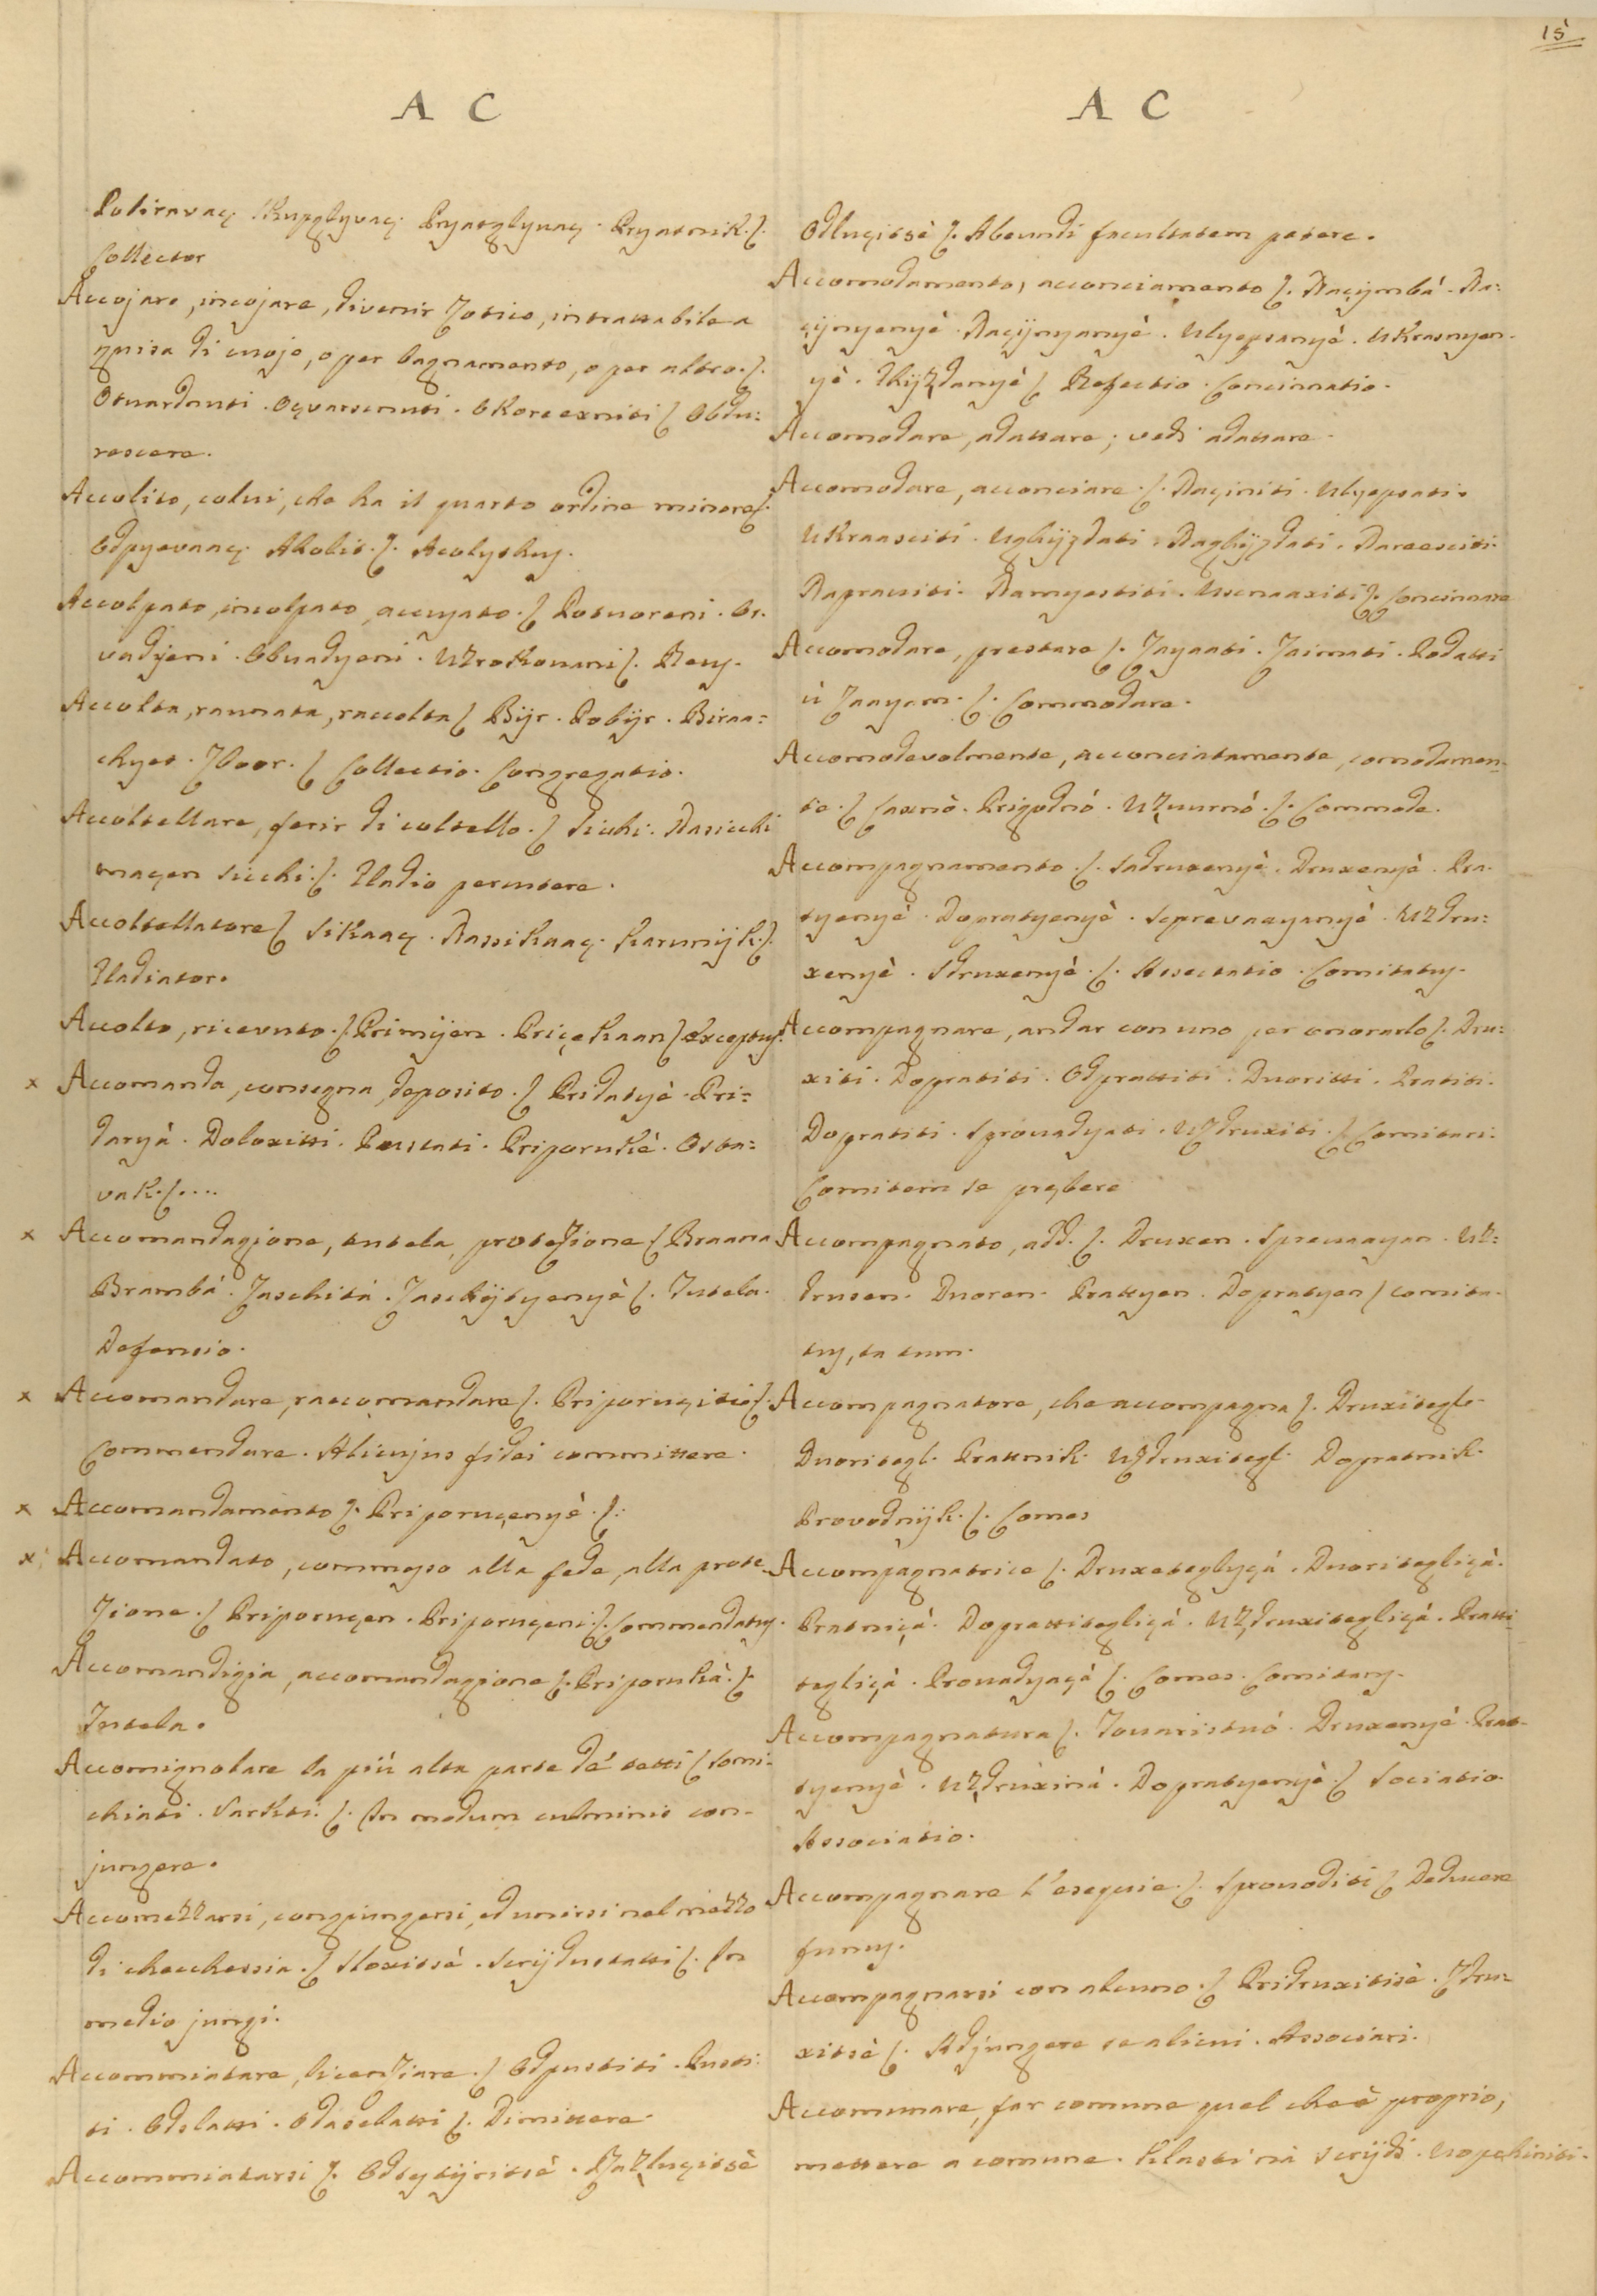 15
A C
Pobiravaç. Skupglyvaç. Pryatglyvaç. Pryatnik. ſ.
Collector
Accojare, incojare, divenir Zotico, intrattabile a
guisa di cuojo, o per bagnamento, o per altro. ſ.
Otvardnuti. Oçvarsnuti. Okoreexniti ſ Obdu=
rescere.
Accolito, colui, che ha il quarto ordine minore ſ.
Odpyevaaç. Akolit. ſ. Acolythus.
Accolpato, incolpato, accusato. ſ Potvoreni. Os.
vadyeni. Obvadyeni. Uzrokovani ſ. Reus.
Accolta, raunata, raccolta ſ Bijr. Pobijr. Biraa=
chyet. Zboor. ſ Collectio. Congregatio.
Accoltellare, ferir di coltello. ſ Sichi. Rasicchi
maçem sicchi. ſ. Gladio percutere.
Accoltellatore ſ Sikaaç. Rassikaaç. Karvnijk. ſ.
Gladiator.
Accolto, ricevuto. ſ Primijen. Priçekaan ſ Exceptus.
x Accomanda, consegna, deposito. ſ Pridatyè. Pri=
danyà. Doloxitti. Poustati. Priporukè. Osta=
vak. ſ....
x Accomandagione, tutela, protezione ſ Braana
Brambà. Zaschità. Zaschijtyenyè ſ. Tutela.
Defensio.
x Accomandare, raccomandare ſ. Priporuçiti ſ.
Commendare. Alicujus fidei committere.
x Accomandamento ſ. Priporuçenyè. ſ.
x Accomandato, commesso alla fede, alla prote
Zione. ſ Priporuçen. Priporuçeni ſ. Commendatus.
Accomandigia, accomandagione ſ. Priporukà. ſ.
Tutela.
Accomignolare la più alta parte dé tetti ſ Somi=
chiati. Sarkti. ſ. In modum culminis con=
jungere.
Accomezzarsi, congiungersi, ed unirsi nel mezzo
di checchessia. ſ Sloxitsè. Srijdustatti ſ. In
medio jungi.
Accommiatare, licenziare. ſ Odpustiti. Pusti=
ti. Odslatti. Odaslatti ſ. Dimittere.
Accommiatarsi ſ. Odtytijritsè. Razluçitsè
A C
Odluçitsè ſ. Abeundi facultatem petere.
Accomodamento, acconciamento ſ. Naçijmbà. Na=
çijnyenyè. Naçijnyanyè. Ulyepsanyè. Ukrasnyen=
yè. Ghijzdanyè ſ Refectio. Concinnatio.
Accomodare, adattare; vedi adattare.
Accomodare, acconciare. ſ. Naçiniti. Ulyepsati.
Ukraasciti. Ughijzdati. Naghijzdati. Nareesciti.
Napraviti. Namyestiti. Usenaaxiti ſ. Concinnare
Accomodare, prestare ſ. Zayaati. Zaimati. Podatti
ù Zaayam. ſ. Commodare.
Accomodevolmente, acconciatamente, comodamen=
te. ſ Laxnò. Prigodnò. Uzvurnò. ſ. Commode.
Accompagnamento. ſ. Sadruxenyè. Druxenyè. Pra=
tyenyè. Dopratyenyè. Seprevaayanyè. Uzdru=
xenyè. Sdruxenyè. ſ. Assectatio. Comitatus.
Accompagnare, andar con uno per onorarlo ſ. Dru=
xiti. Dopratiti. Odprattiti. Dvoritti. Pratiti.
Dopratiti. Sprovadyati. Uzdruxiti. ſ Comitari.
Comitem se prębere
Accompagnato, add. ſ. Druxen. Sprevaayan. Uz=
druxen. Dvoren. Prattyen. Dopratyen ſ comita=
tus, ta tum.
Accompagnatore, che accompagna ſ. Druxitegl.
Dvoritegl. Prattnik. Uzdruxitegl. Dopratnik.
Provodnijk. ſ. Comes
Accompagnatrice ſ. Druxeteglyçà. Dvoritegliçà.
Pratniçà. Doprattitegliçà. Uzdruxitegliçà. Pratti=
tegliçà. Provadyaçà ſ. Comes. Comitans.
Accompagnatura ſ. Tovaristvò. Druxenyè. Prat=
tyenyè. Uzdruxinà. Dopratyenyè. ſ Sociatio.
Associatio.
Accompagnare l'esequie. ſ. Sprovoditi ſ Deducere
funus.
Accompagnarsi con alcuno. ſ Pridruxitisè. Zdru=
xitsè ſ. Adjungere se alicui. Associari.
Accomunare, far comune quel che è proprio,
mettere a comune. Klastti nà Srijdi. Uopchiniti.